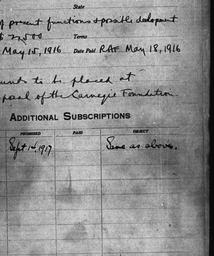 State
of present functions & possible development
$ 22,500 Terms
May 15, 1916 Date Paid RAF May 18, 1916
unts to be placed at
posal of the Carnegie Foundation.
ADDITIONAL SUBSCRIPTIONS
PROMISED PAID OBJECT
Sept 1st, 1917 Same as above.